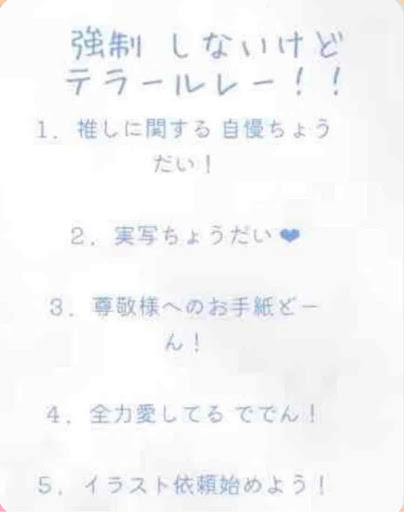 強制 しないけど
テラールレー！！
1. 推しに関する 自慢ちょう
だい！
2. 実写ちょうだい❤
3. 尊敬様へのお手紙どー
ん！
4. 全力愛してる ででん！
5. イラスト依頼始めよう！